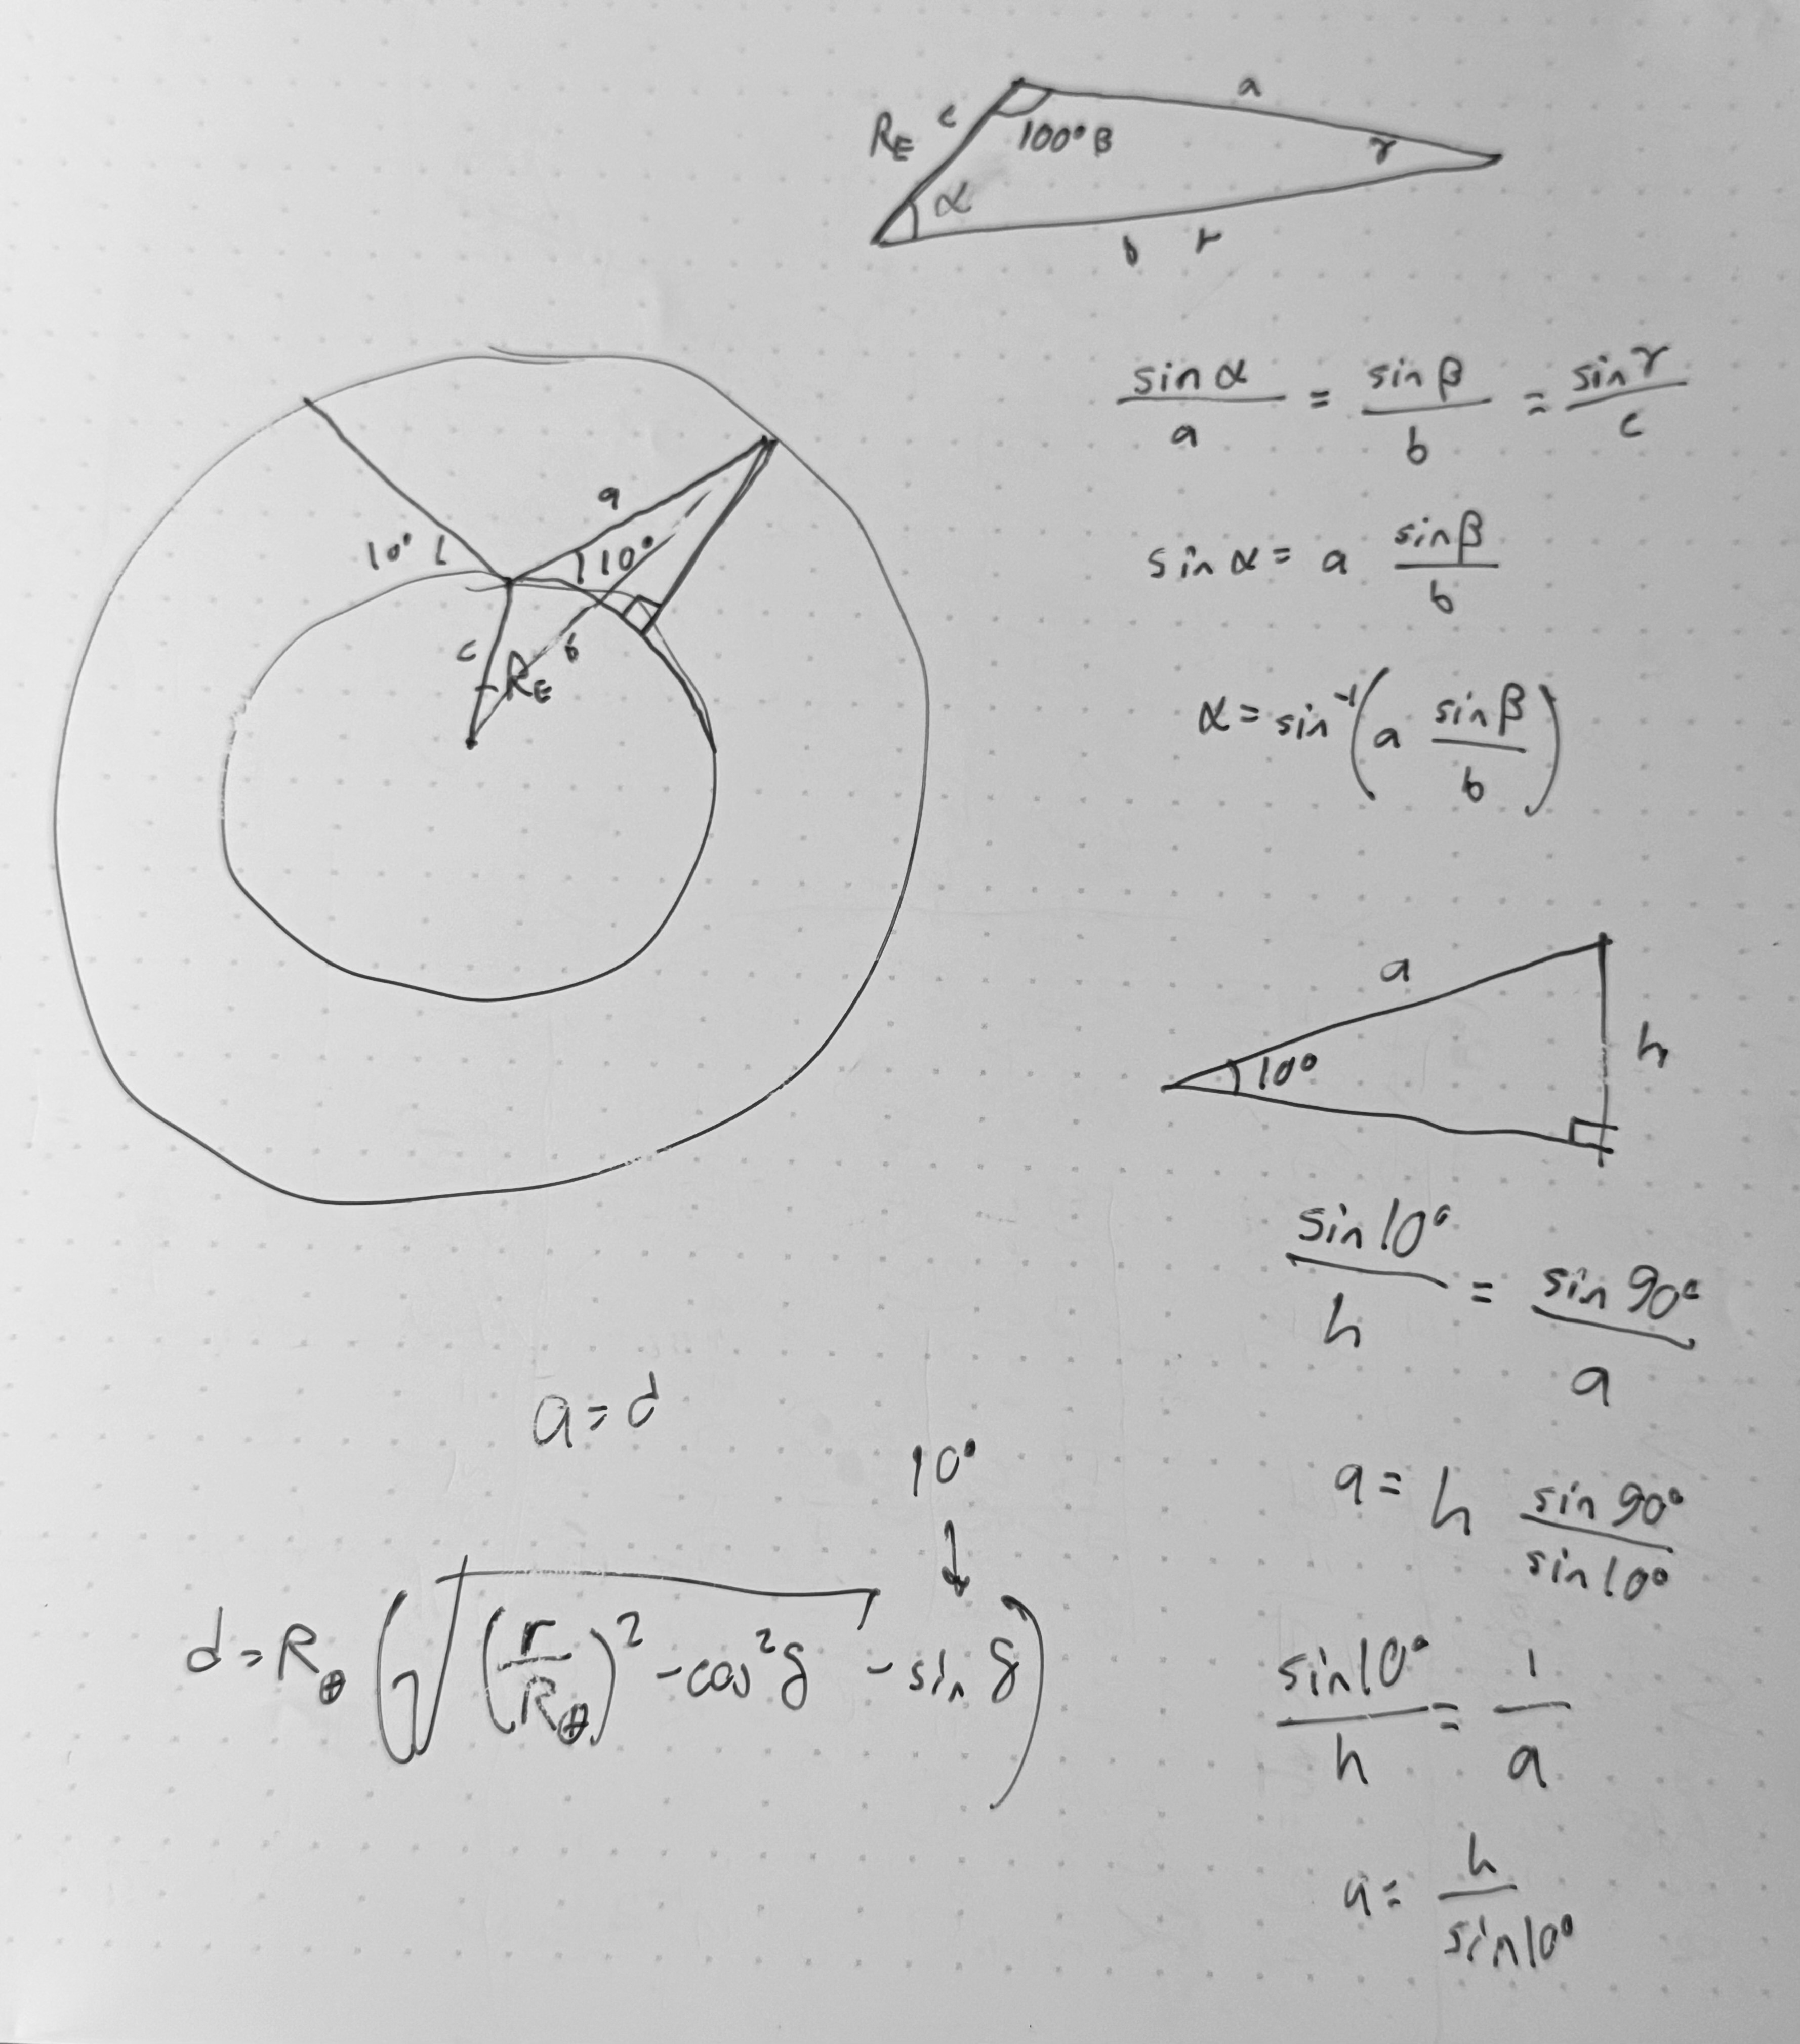 a
R_E c
100° β
γ
α
b r
sin α / a = sin β / b = sin γ / c
sin α = a sin β / b
α = sin⁻¹ (a sin β / b)
a
10°
10°
c
R_E
b
a
10°
h
sin 10° / h = sin 90° / a
a = h sin 90° / sin 10°
sin 10° / h = 1 / a
a = h / sin 10°
a = d
10°
↓
d = R_⊕ (√((r / R_⊕)² - cos² δ) - sin δ)